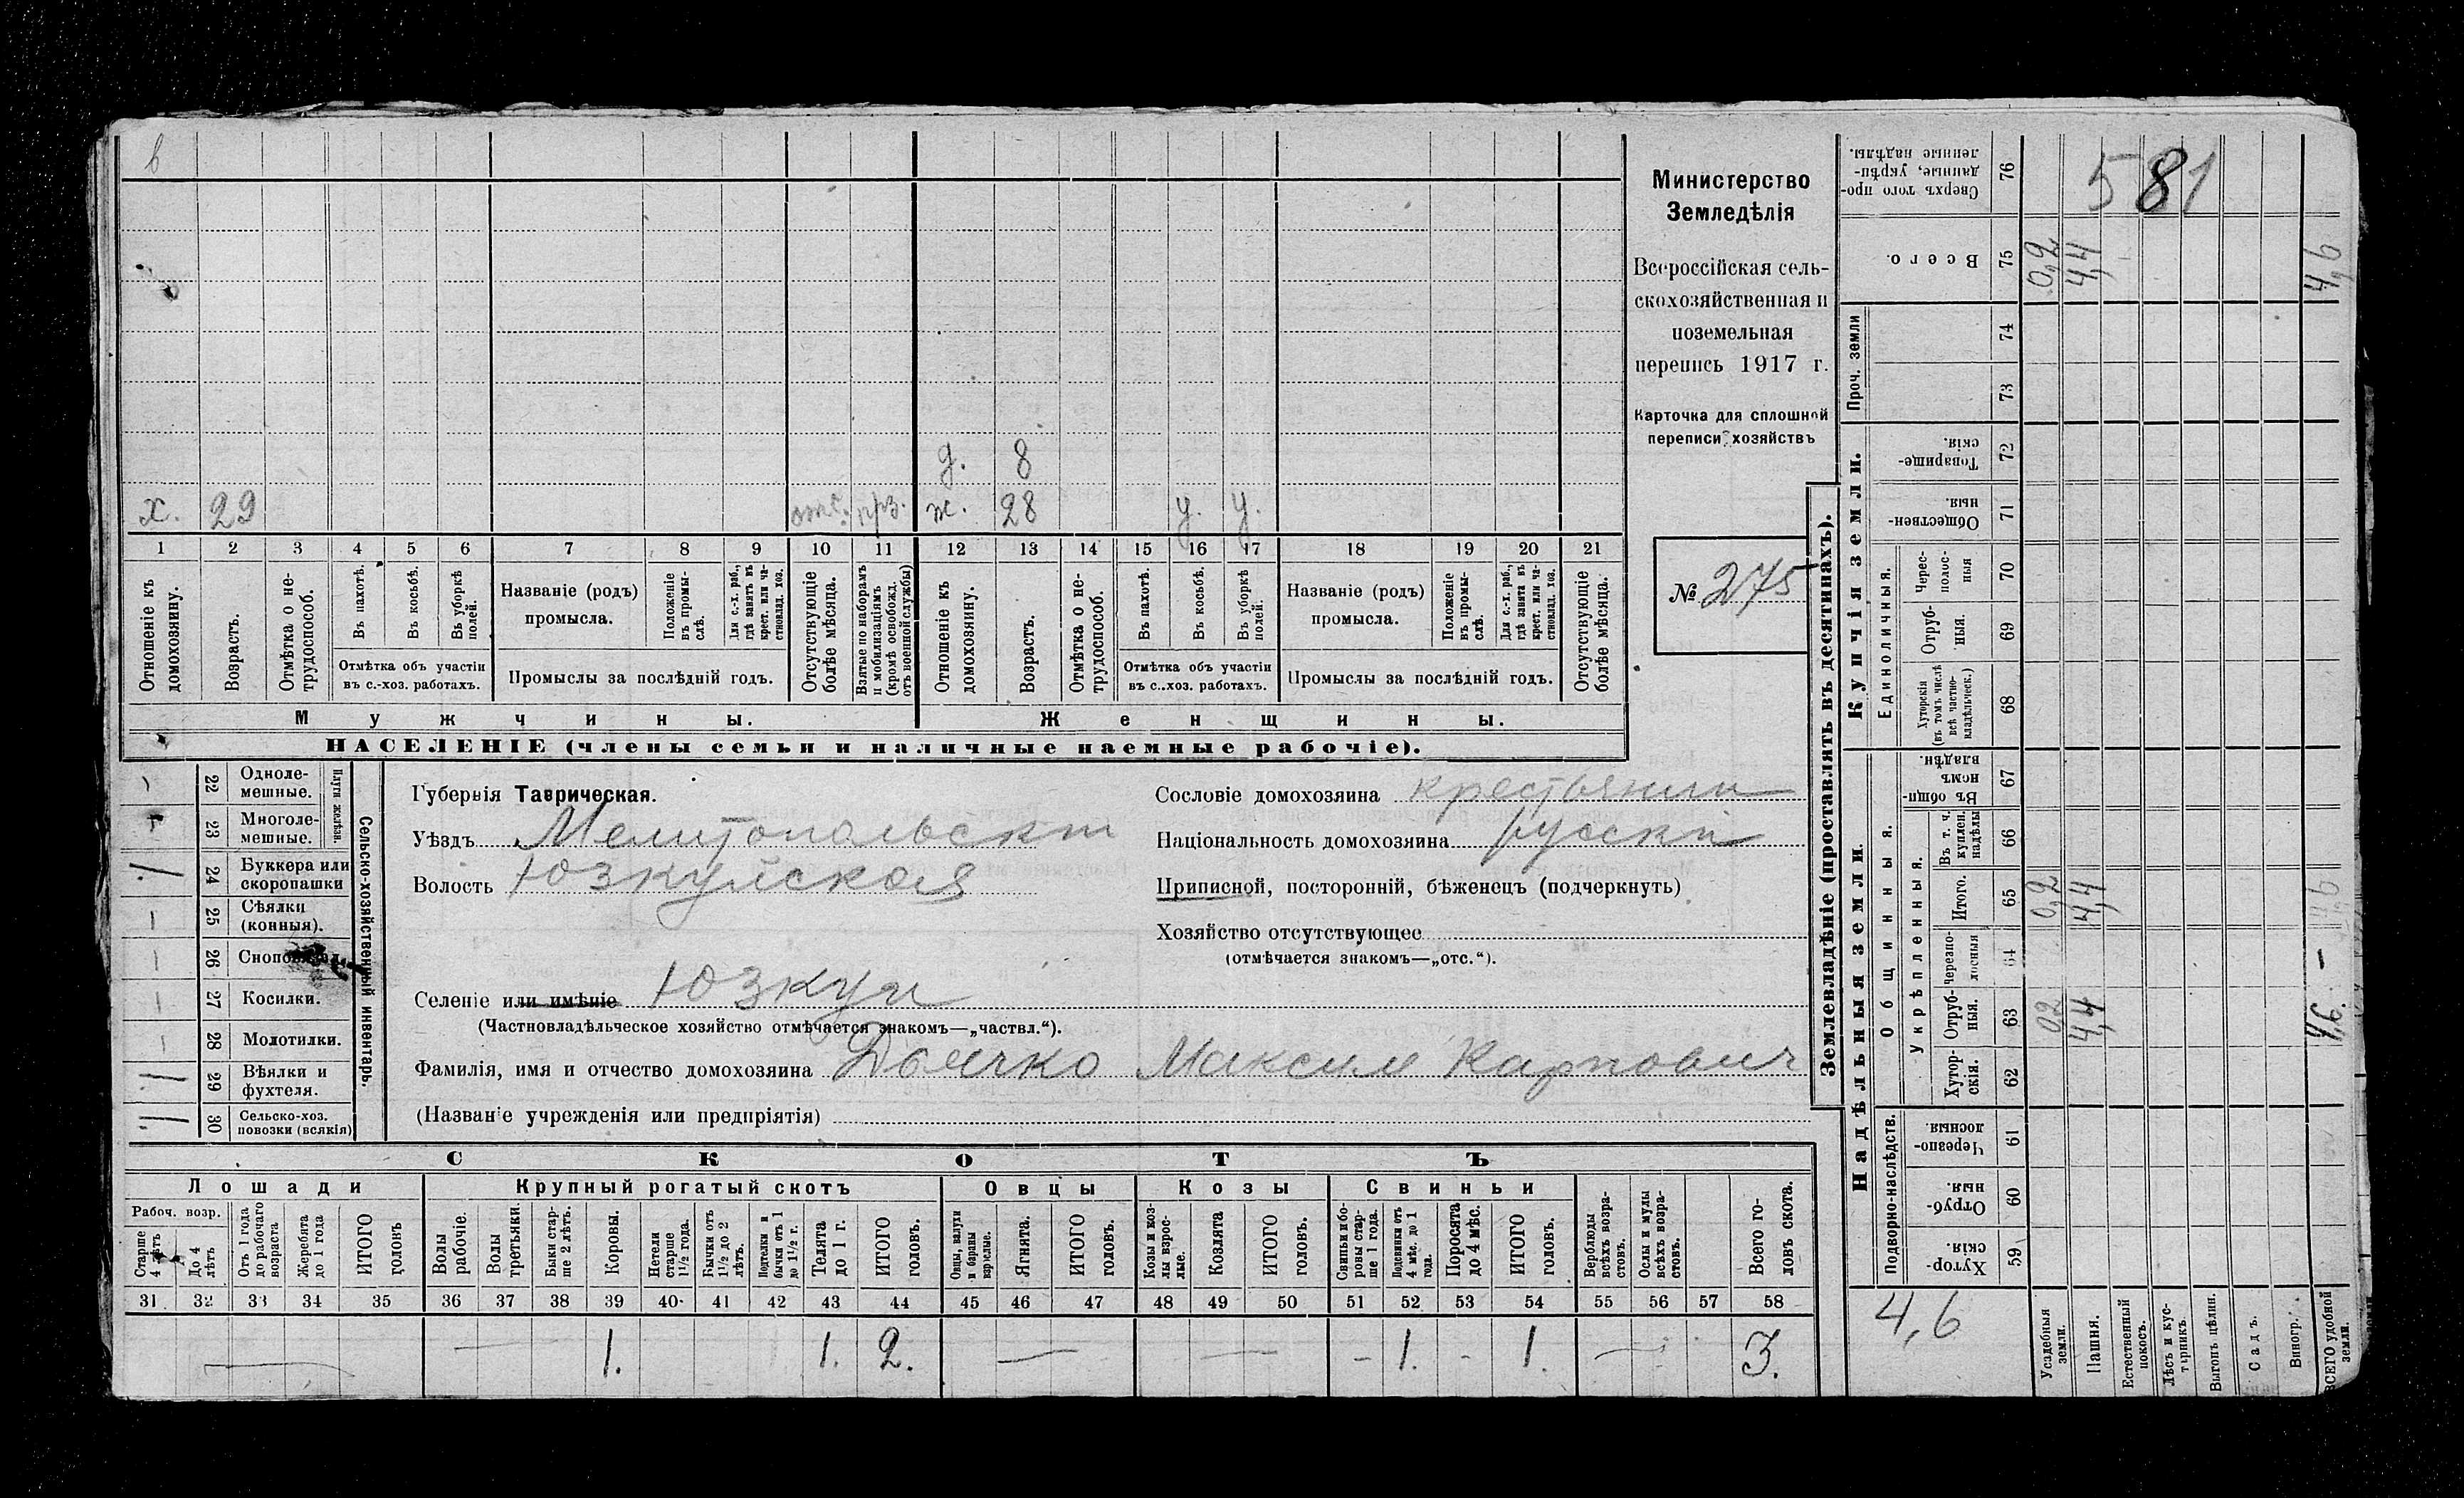 в
д. 8
х. 29 отс. прз. ж. 28 у. у.
1 2 3 4 5 6 7 8 9 10 11 12 13 14 15 16 17 18 19 20 21
Отношеніе къ домохозяину.
Возрастъ.
Отмѣтка о не-
трудоспособ.
Въ пахотѣ.
Въ косьбѣ.
Въ уборкѣ
полей.
Отмѣтка объ участіи
въ с.-хоз. работахъ.
Названіе (родъ)
промысла.
Положеніе
въ промы-
слѣ.
Для с.-х. раб.,
гдѣ занятъ въ
крест. или ча-
стновлад. хоз.
Промыслы за послѣдній годъ.
Отсутствующіе
болѣе мѣсяца.
Взятые по наборамъ
и мобилизаціямъ
(кромѣ освобожд.
отъ военной службы)
Отношеніе къ
домохозяину.
Возрастъ.
Отмѣтка о не-
трудоспособ.
Въ пахотѣ.
Въ косьбѣ.
Въ уборкѣ
полей.
Отмѣтка объ участіи
въ с.-хоз. работахъ.
Названіе (родъ)
промысла.
Положеніе
въ промы-
слѣ.
Для с.-х. раб.,
гдѣ занята въ
крест. или ча-
стновлад. хоз.
Промыслы за послѣдній годъ.
Отсутствующіе
болѣе мѣсяца.
Мужчины. Женщины.
НАСЕЛЕНІЕ (члены семьи и наличные наемные рабочіе).
Министерство
Земледѣлія
Всероссійская сель-
скохозяйственная и
поземельная
перепись 1917 г.
Карточка для сплошной
переписи хозяйствъ
№ 275
22 Одноле-
мешные.
23 Многоле-
мешные.
Плуги желѣзн.
24 Буккера или
скоропашки
25 Сѣялки
(конныя).
26
27 Косилки.
28 Молотилки.
29 Вѣялки и
фухтеля.
30 Сельско-хоз.
повозки (всякія)
Сельско-хозяйственный инвентарь.
Губернія Таврическая.
Уѣздъ Мелитопольскій
Волость Юзкуйская
Селеніе или имѣніе Юзкуи
(Частновладѣльческое хозяйство отмѣчается знакомъ—„частвл.“).
Фамилія, имя и отчество домохозяина Дьячко Максим Карпович
(Названіе учрежденія или предпріятія)
Сословіе домохозяина крестьянин
Національность домохозяина русскій
Приписной, посторонній, бѣженецъ (подчеркнуть)
Хозяйство отсутствующее
(отмѣчается знакомъ—„отс.“).
СКОТЪ
Лошади Крупный рогатый скотъ Овцы Козы Свиньи
Рабоч. возр.
Старше
4 лѣтъ
До 4
лѣтъ
Отъ 1 года
до рабочаго
возраста
Жеребята
до 1 года
ИТОГО
головъ
Волы
рабочіе.
Волы
третьяки.
Быки стар-
ше 2 лѣтъ.
Коровы.
Нетели
старше
1½ года.
Бычки отъ
1½ до 2
лѣтъ.
Подтелки и
бычки отъ 1
до 1½ г.
Телята
до 1 г.
ИТОГО
головъ.
Овцы, валухи
и бараны
взрослые.
Ягнята.
ИТОГО
головъ.
Козы и коз-
лы взрос-
лые.
Козлята
ИТОГО
головъ.
Свиньи и бо-
ровы стар-
ше 1 года.
Подсвинки отъ
4 мѣс. до 1
года.
Поросята
до 4 мѣс.
ИТОГО
головъ.
Верблюды
всѣхъ возра-
стовъ.
Ослы и мулы
всѣхъ возра-
стовъ.
Всего го-
ловъ скота.
31 32 33 34 35 36 37 38 39 40 41 42 43 44 45 46 47 48 49 50 51 52 53 54 55 56 57 58
— — 1. 1. 2. — — - 1. - 1. — 3.
Землевладѣніе (проставлять въ десятинахъ).
Купчія земли.
Надѣльныя земли.
Сверхъ того про-
данные, укрѣп-
ленные надѣлы. 76
581
Всего. 75 0,2 4,4 4,6
Проч. земли 74
73
Товарище-
скія. 72
Обществен-
ныя. 71
Единоличныя.
Черес-
полос-
ныя 70
Отруб-
ныя. 69
Хуторскія
(въ томъ числѣ
всѣ частно-
владѣльческ.) 68
Общинныя.
Въ общи-
номъ
владѣн. 67
Укрѣпленныя.
Въ т. ч.
куплен.
надѣлы 66
Итого. 65 0,2 4,4 4,6
Черезпо-
лосныя 64 -
Отруб-
ныя. 63 02 4,4 4,6.
Хутор-
скія. 62
Подворно-наслѣдств.
Черезпо-
лосныя 61
Отруб-
ныя. 60
Хутор-
скія. 59
4,6
Усадебныя
земли.
Пашня.
Естественный
покосъ.
Лѣсъ и кус-
тарникъ.
Выгонъ цѣлин.
Садъ.
Виногр.
ВСЕГО удобной
земли.